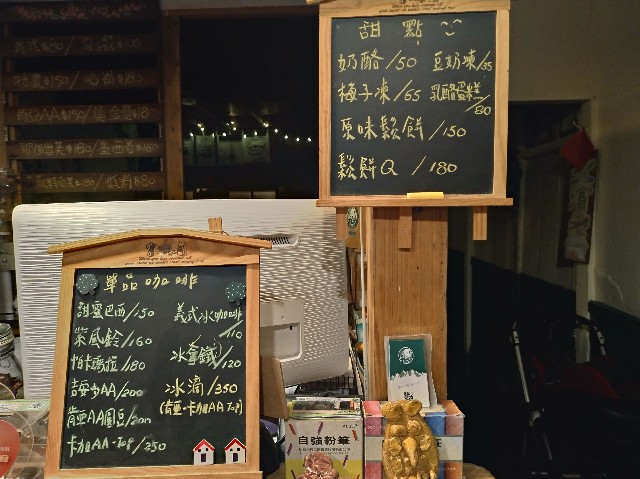 甜點
奶酪/50 豆奶凍/35
梅子凍/65 乳酪蛋糕/80
原味鬆餅/150
鬆餅Q/180
單品咖啡
甜蜜巴西/150 義式冰咖啡/110
紫風鈴/160 冰拿鐵/120
帕卡瑪拉/180 冰滴/350
吉安多AA/200 (肯亞-卡加AA Top)
肯亞AA圓豆/200
卡加AA-Top/250
自強粉筆